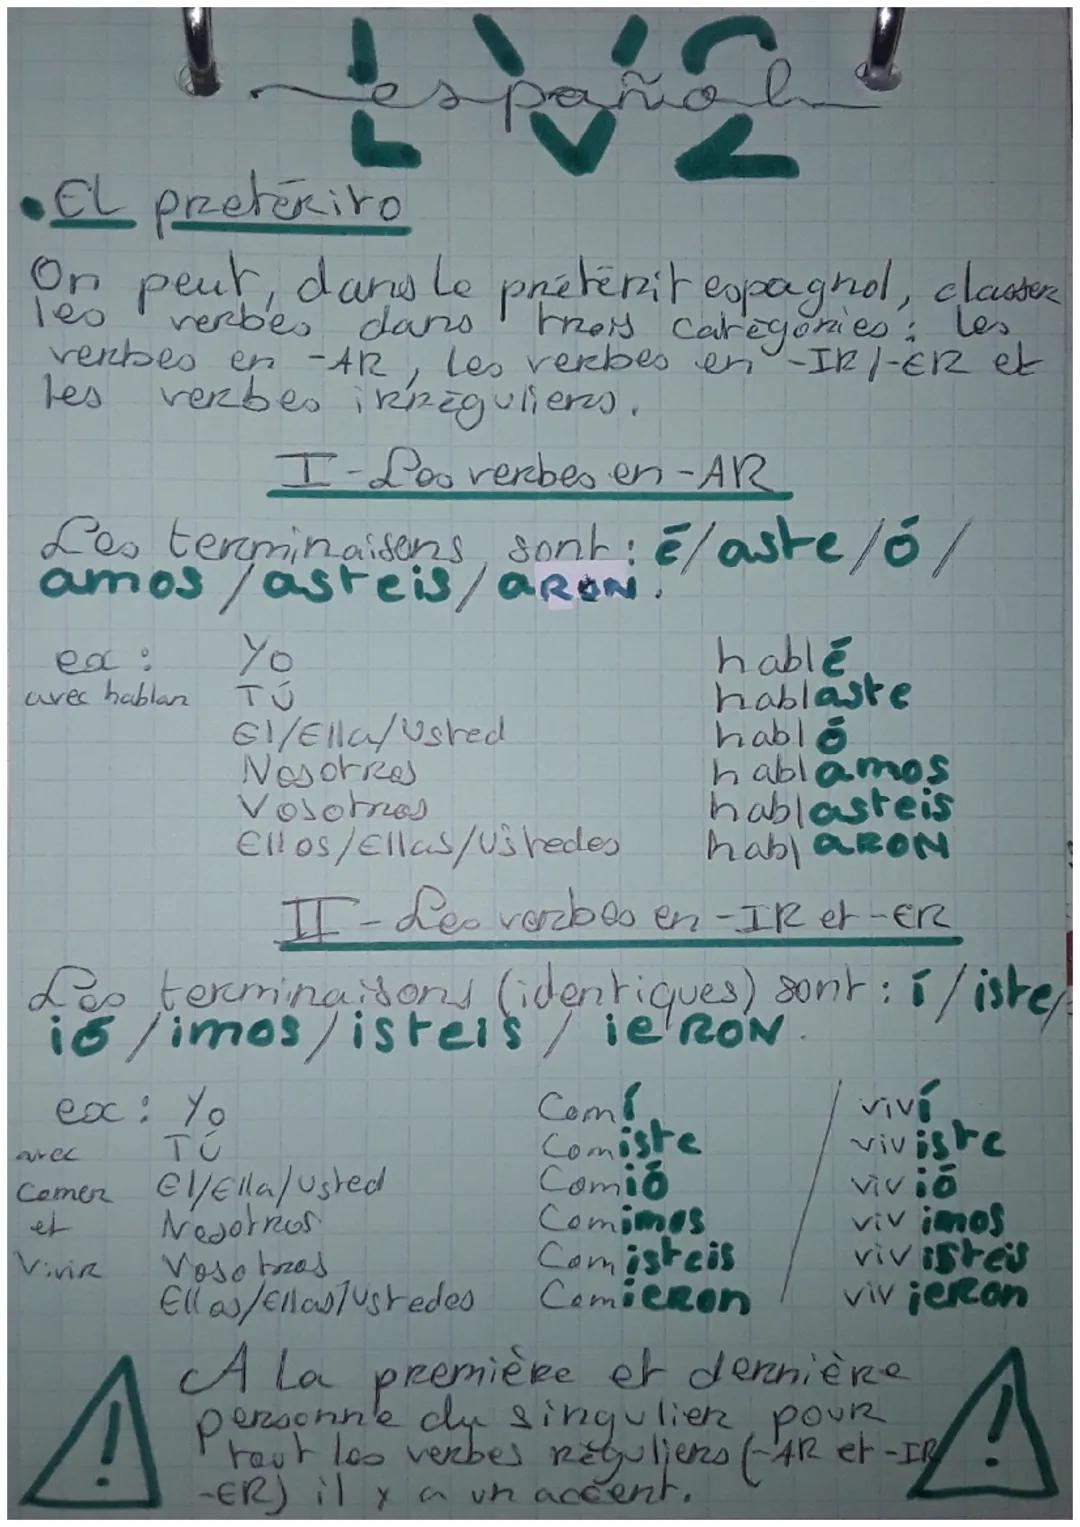 LV2
español
• El pretérito
On peut, dans le prétérit espagnol, classer
les verbes dans trois catégories : les
verbes en -AR, les verbes en -IR/-ER et
les verbes irréguliers.
I - Les verbes en -AR
Les terminaisons sont : é/aste/ó/
amos/asteis/aRON.
ex : Yo hablé
avec hablar TÚ hablaste
El/Ella/Usted habló
Nosotros hablamos
Vosotros hablasteis
Ellos/Ellas/Ustedes hablaRON
II - Les verbes en -IR et -ER
Les terminaisons (identiques) sont : í/iste/
ió/imos/isteis/ieRON.
ex : Yo Comí / viví
avec TÚ Comiste viviste
Comer El/Ella/Usted Comió vivió
et Nosotros Comimos vivimos
Vivir Vosotros Comisteis vivisteis
Ellos/Ellas/Ustedes Comieron vivieron
A la première et dernière
personne du singulier pour
tout les verbes réguliers (-AR et -IR/
-ER) il y a un accent.